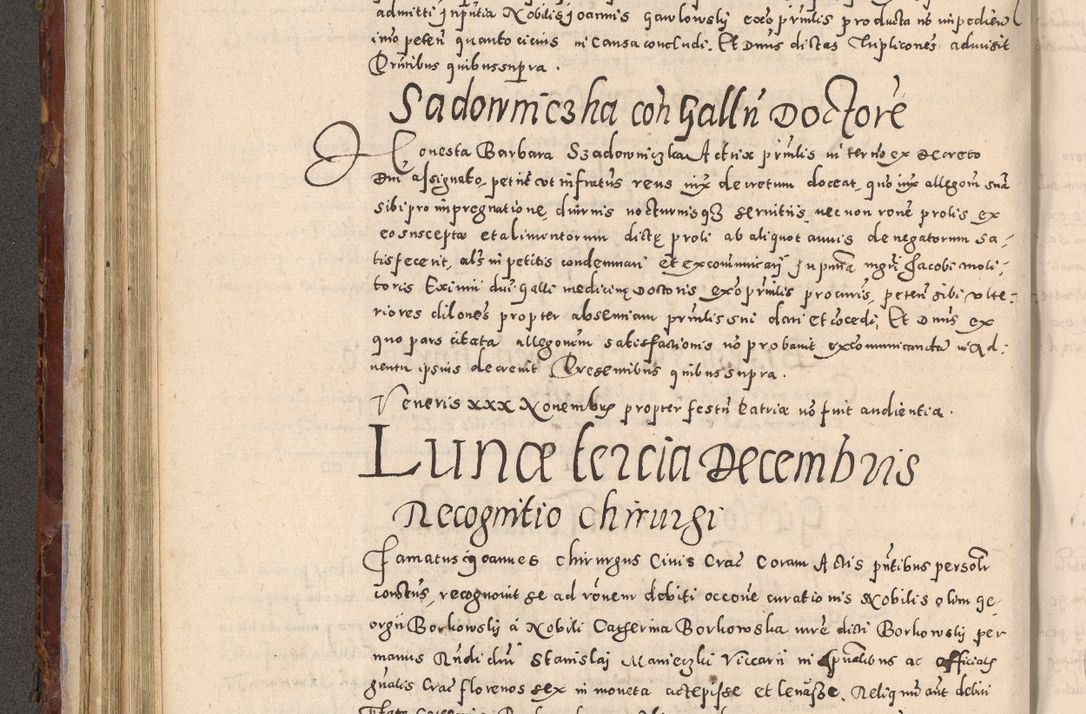 admitti in pñtia Nobilis Joannis Gawlowsky exo prñlis producta nō impedien
imo peten quanto cicius in causa concludi. Et Dnus dictas Triplicones admisit
Prñtibus quibus supra.
Sadowniczka con Gallū Doctorē
Honesta Barbara Szadowniczka Actrix prñlis in termo ex Decreto
Dni assignato, petiit vt infratus reus iux decretum doceat, quo iux allegom suā
sibi pro impregnatione, diurnis nocturnisq3 seruitiis, nec non rone prolis ex
eo suscepta et alimentorum dictę proli ab aliquot annis denegatorum sa-
tisfecerit, als in petitis condemnari et excommunicari. In pntia mgri Jacobi moli-
toris Eximii dni Galli medicinę Doctoris exo prñlis procuris, peten sibi vlte-
riores dilones propter absentiam prñlis sui dari et cocedi, Et Dnus ex
quo pars citata allegonem satisfactionis no probauit excommunicanda in ad-
uentu ipsius decreuit Presentibus quibus supra.
Veneris xxx Nouembr propter festū Patriæ nō fuit audientia.
Lunæ tercia Decembris
Recognitio chirurgi
Famatus Joannes chirurgus Ciuis Crac Coram Actis pñtibus personlr
constus, recognouit se ad ronem debiti occone curationis Nobilis olim Ge-
orgii Borkowsky á Nobili Catherina Borkowska vxre dicti Borkowsky per
manus Rndi dni Stanislaj Manieczki Viccarii in spualibus ac officialis
gnalis Crac florenos sex in moneta accepisse et leuasse. Reliquum aut debiti